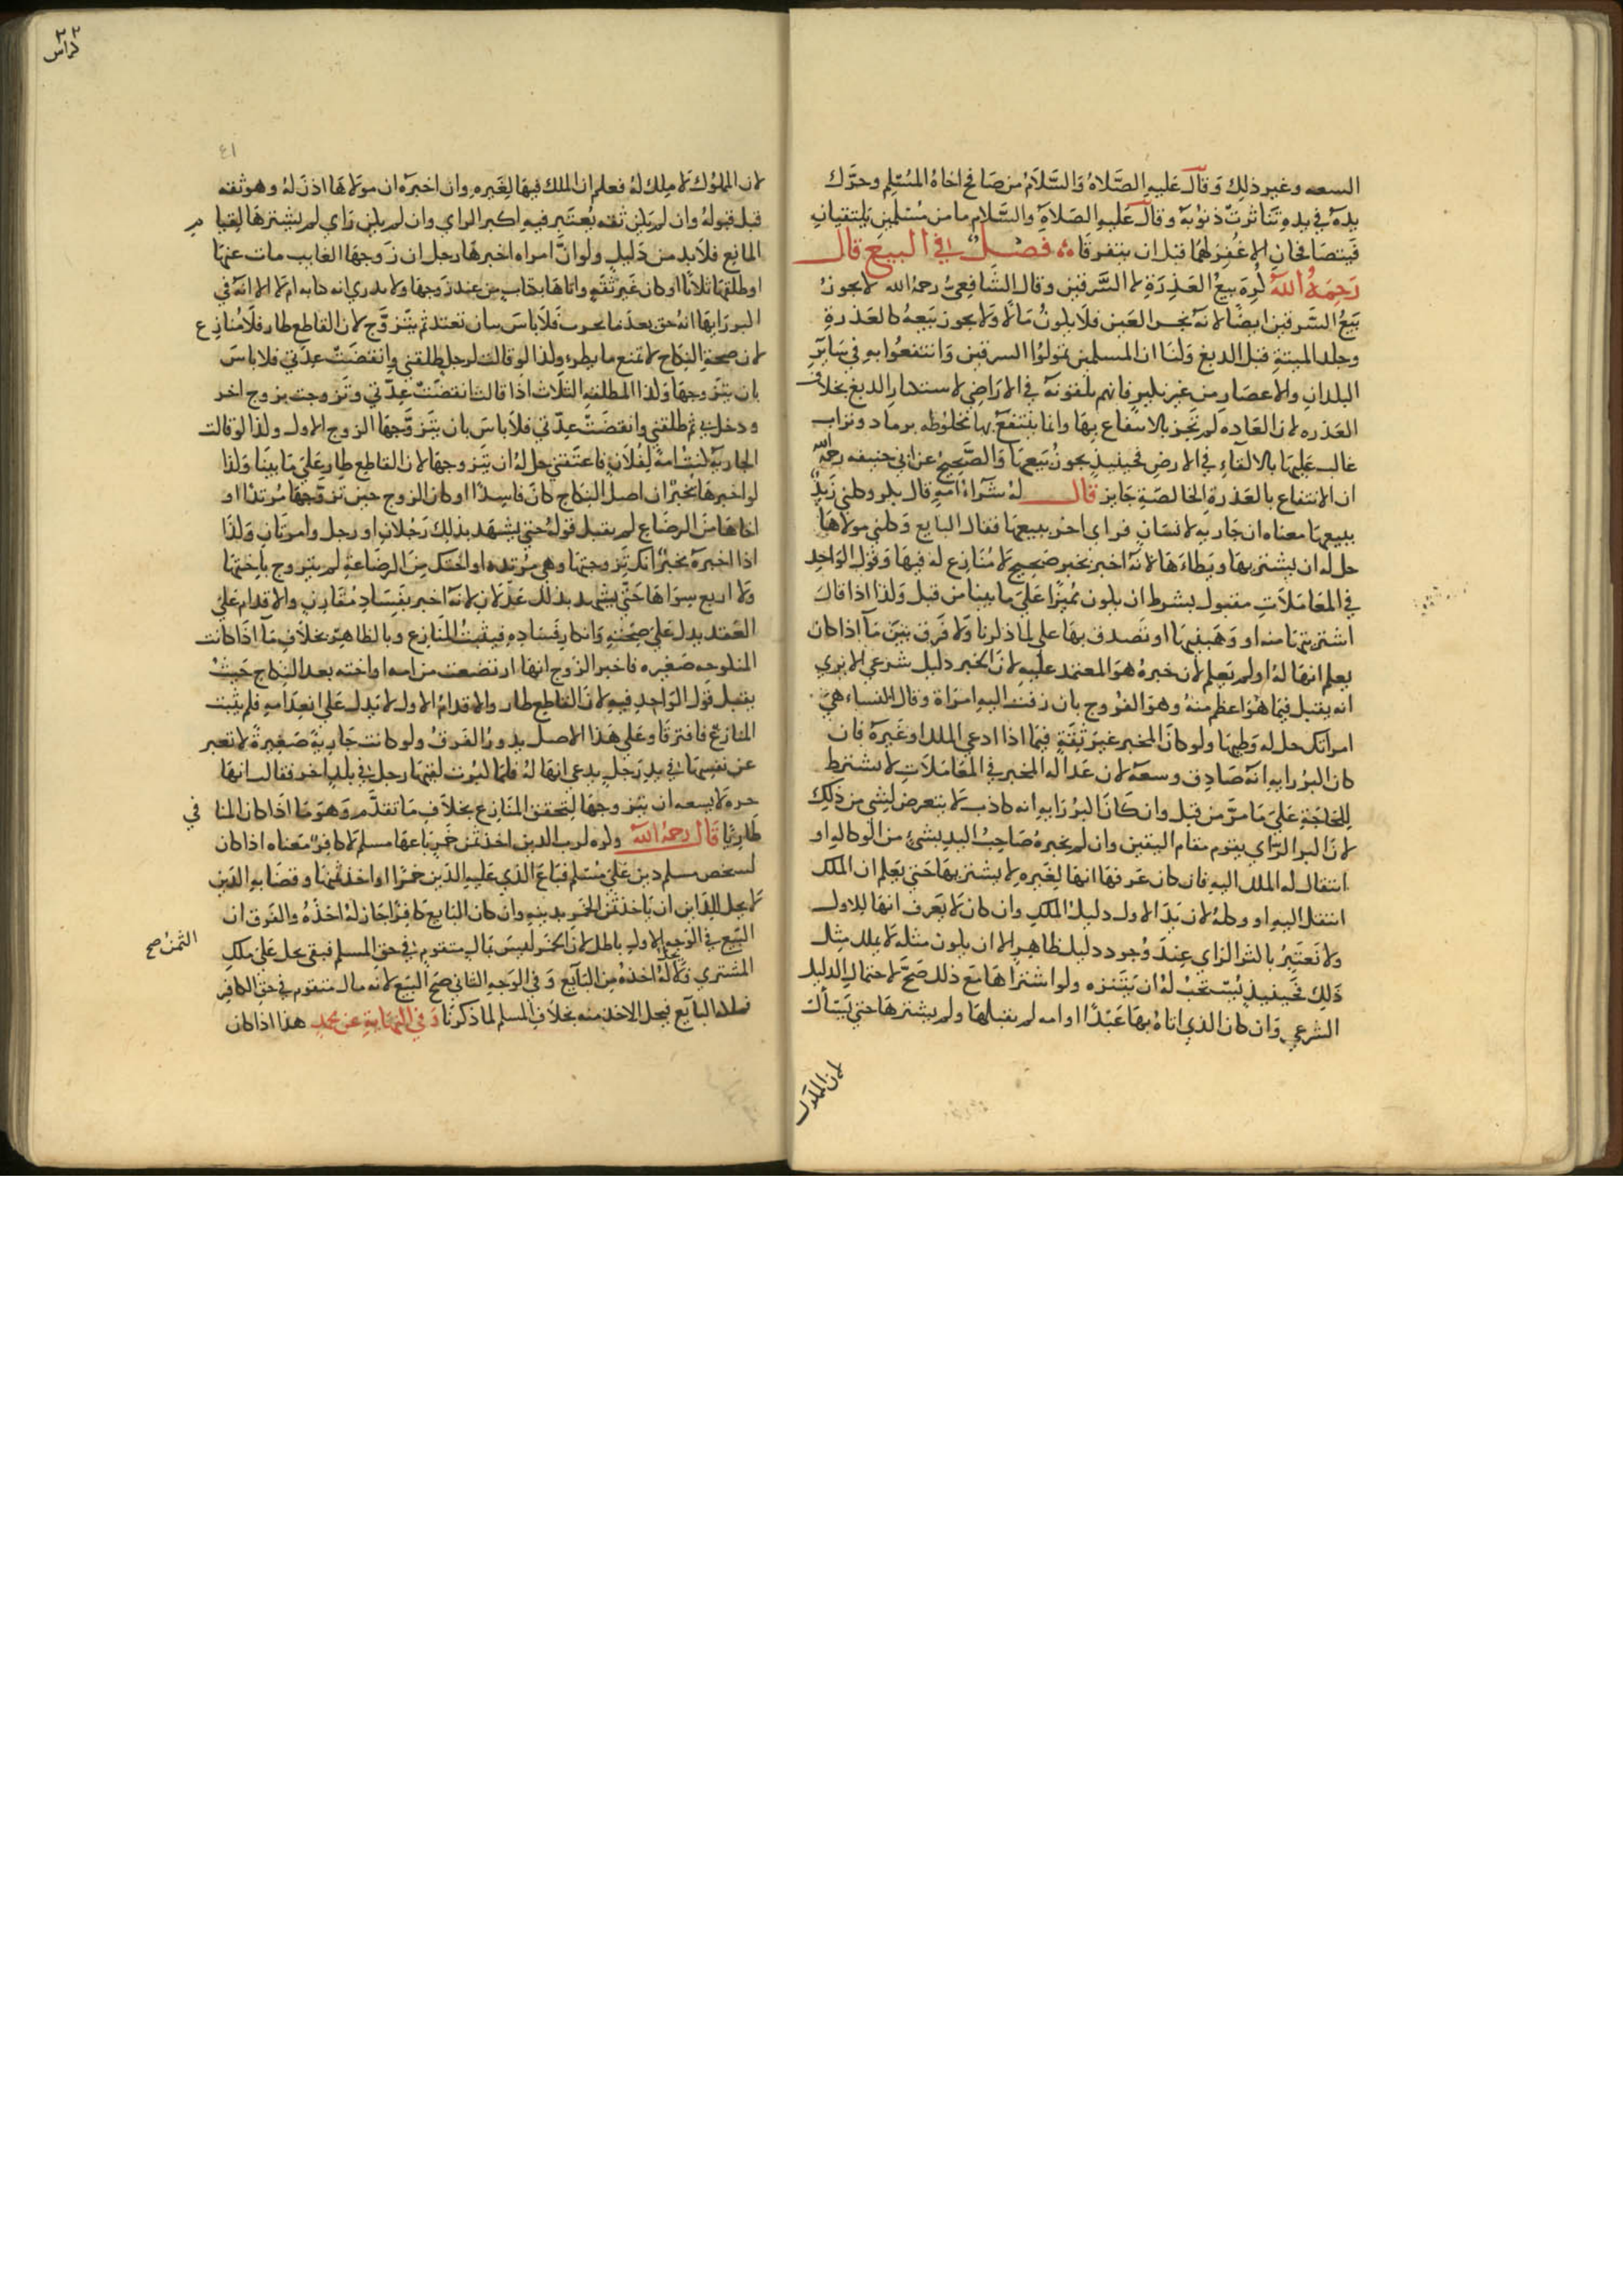 السعه وغير ذلك وقال عليه الصلاة والسلام من صافح اخاه المسلم وحرك
يده في يده تناثرت ذنوبه وقال عليه الصلاة والسلام ما من مسلمين يلتقيان
فيتصافحان الا غفر لهما قبل ان يتفرقا فصل في البيع قال
رحمه الله كره بيع العذرة لا السرقين وقال الشافعي رحمه الله لا يجوز
بيع السرقين ايضا لانه نجس العين فلا يكون مالا ولا يجوز بيعه كالعذرة
وجلد الميتة قبل الدبغ ولنا ان المسلمين تمولوا السرقين وانتفعوا به في سائر
البلدان والاعصار من غير نكير فانهم يلقونه في الاراضي لاستكثار الريع بخلاف
العذره لان العاده لم تجر بالانتفاع بها وانما ينتفع بها مخلوطه برماد وتراب
غالب عليها بالالقاء في الارض فحينيذ يجوز بيعها والصحيح عن ابي حنيفه رحمه الله
ان الانتفاع بالعذرة الخالصة جايز قال له شراء امة قال بكر وكلني زيد
ببيعها معناه ان جاريه لانسان فراى اخر يبيعها فقال البايع وكلني مولاها
حل له ان يشتريها ويطاءها لانه اخبر بخبر صحيح لا منازع له فيها وقول الواحد
في المعاملات مقبول بشرط ان يكون مميزا على ما بينا من قبل وكذا اذا قال
اشتريتها منه او وهبنيها او تصدق بها علي لما ذكرنا ولا فرق بين ما اذا كان
يعلم انها له او لم يعلم لان خبره هو المعتمد عليه لان الخبر دليل شرعي الا يرى
انه يقبل فيما هو اعظم منه وهو الفروج بان زفت اليه امراة وقال النساء هي
امراتك حل له وطيها ولو كان المخبر غير ثقة فيما اذا ادعى الملك او غيره فان
كان اكبر رايه انه صادق وسعه لان عدالة المخبر في المعاملات لا تشترط
للحاجة على ما مر من قبل وان كان اكبر رايه انه كاذب لا يتعرض لشي من ذلك
لان اكبر الراي يقوم مقام اليقين وان لم يخبره صاحب اليد بشئ من الوكاله او
انتقال الملك اليه فان كان عرفها انها لغيره لا يشتريها حتى يعلم ان الملك
انتقل اليه او وكله لان يد الاول دليل الملك وان كان لا يعرف انها للاول
ولا تعتبر باكثر الراي عند وجود دليل ظاهر الا ان يكون مثله لا يملك مثل
ذلك فحينيذ يستحب له ان يتنزه ولو اشتراها مع ذلك صح لاحتمال الدليل
الشرعي وان كان الذي اتاه بها عبدا او امه لم يقبلها ولم يشترها حتى يسأل
لان المملوك
٢٢
كراس
٤١
لان المملوك لا ملك له فعلم ان الملك فيها لغيره وان اخبره ان مولاها اذن له وهو ثقه
قبل قبوله وان لم يكن ثقه يعتبر فيه اكبر الراي وان لم يكن راي لم يشترها لقيام
المانع فلا بد من دليل ولو ان امراه اخبرها رجل ان زوجها الغايب مات عنها
او طلقها ثلاثا او كان غير ثقه واتاها بكتاب من عند زوجها ولا يدري انه كتابه ام لا الا انه في
اكبر رايها انه حق بعدما تحرت فلا باس بان تعتد ثم تتزوج لان القاطع طار فلا منازع
لان صحة النكاح لا تمنع ما يطرء وكذا لو قالت لرجل طلقني وانقضت عدتي فلا باس
بان يتزوجها وكذا المطلقه الثلاث اذا قالت انقضت عدتي وتزوجت بزوج اخر
ودخل بي ثم طلقني وانقضت عدتي فلا باس بان يتزوجها الزوج الاول وكذا لو قالت
الجارية كنت امة لفلان فاعتقني حل له ان يتزوجها لان القاطع طار على ما بينا وكذا
لو اخبرها مخبر ان اصل النكاح كان فاسدا او كان الزوج حين تزوجها مرتدا او
اخاها من الرضاع لم يقبل قوله حتى يشهد بذلك رجلان او رجل وامرتان وكذا
اذا اخبره مخبر انك تزوجتها وهي مرتده او اختك من الرضاعة لم يتزوج باختها
ولا اربع سواها حتى يشهد بذلك عدلان لانه اخبر بفساد مقارن والاقدام على
العقد يدل على صحته وانكار فساده فيثبت المنازع وبالظاهر بخلاف ما اذا كانت
المنكوحه صغيره فاخبر الزوج انها ارتضعت من امه او اخته بعد النكاح حيث
يقبل قول الواحد فيه لان القاطع طار والاقدام الاول لا يدل على انعدامه فلم يثبت
المنازع فافترقا وعلى هذا الاصل يدور الفرق ولو كانت جارية صغيرة لا تعبر
عن نفسها في يد رجل يدعي انها له فلما كبرت لقيها رجل في بلد اخر فقالت انها
حره لا يسعه ان يتزوجها لتحقق المنازع بخلاف ما تقدم وهو ما اذا كان المنافي
طاريا قال رحمه الله وكره لرب الدين اخذ ثمن خمر باعها مسلم لا كافر معناه اذا كان
لشخص مسلم دين على مسلم فباع الذي عليه الدين خمرا واخذ ثمنها وقضا به الدين
لا يحل للداين ان ياخذ ثمن الخمر بدينه وان كان البايع كافرا جاز له اخذه والفرق ان
البيع في الوجه الاول باطل لان الخمر ليس بمال متقوم في حق المسلم فبقي على ملك
الثمن صح
المشتري ولا يحل له اخذه من البايع وفي الوجه الثاني صح البيع لانه مال متقوم في حق الكافر
فملكه البايع فيحل الاخذ منه بخلاف المسلم لما ذكرنا وفي النهاية عن محمد هذا اذا كان